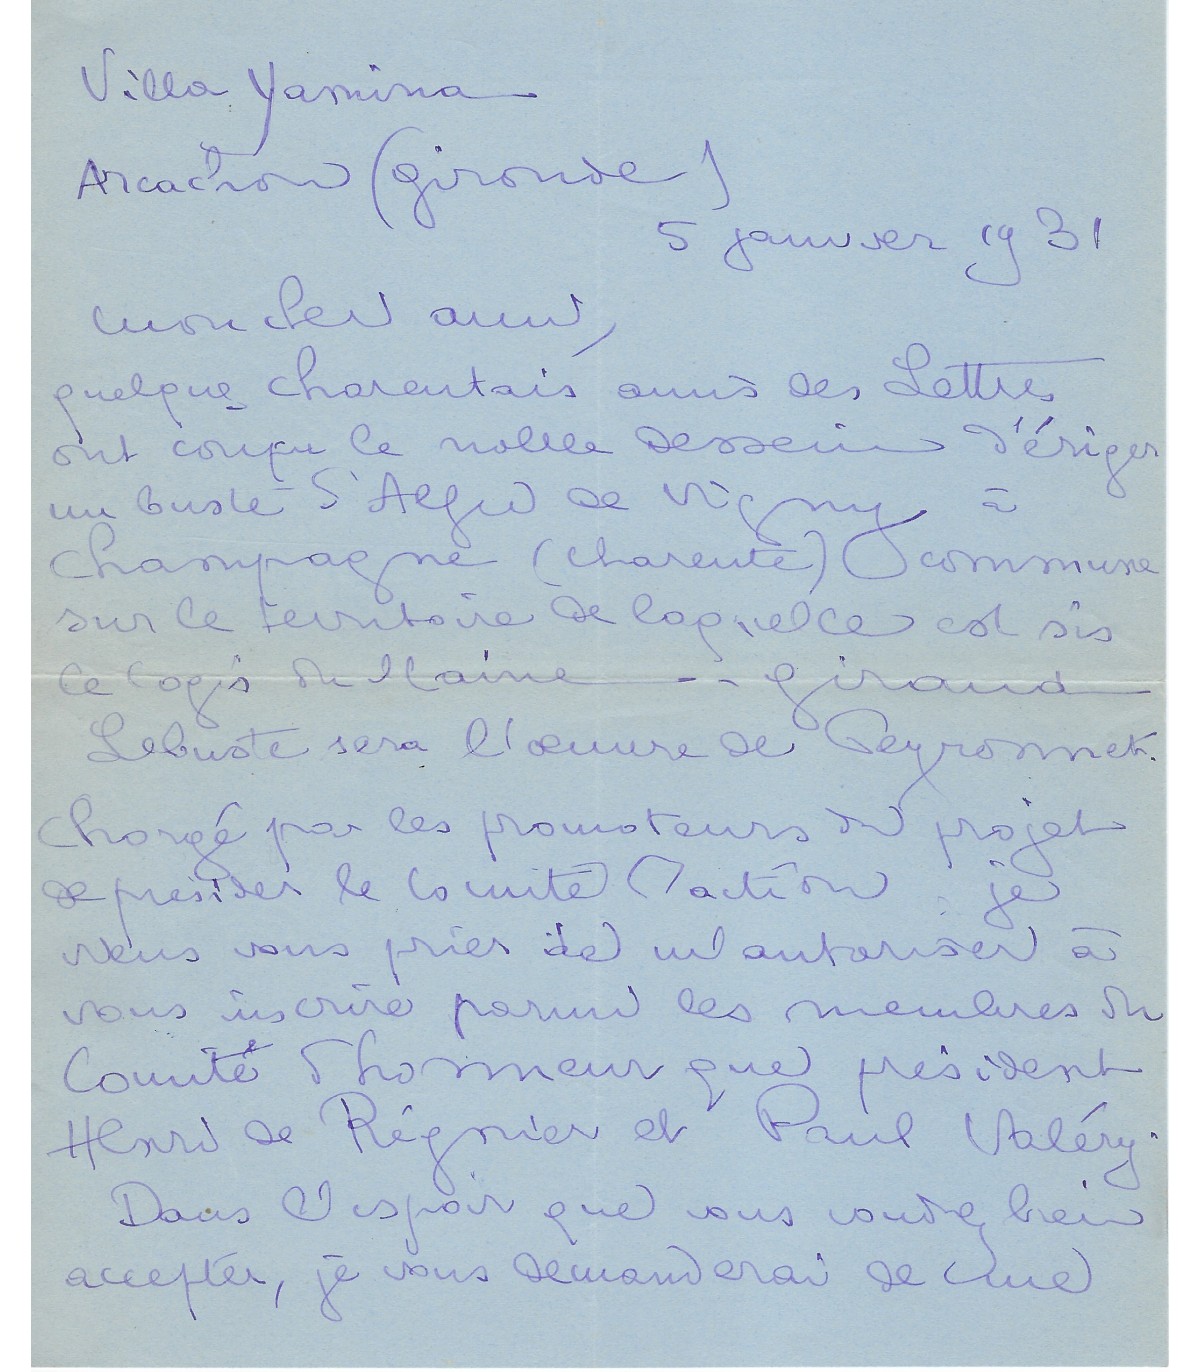 Villa Yamina
Arcachon (Gironde)
5 janvier 1931
Mon cher ami,
quelques charentais amis des Lettres
ont conçu le noble dessein d'ériger
un buste d'Alfred de Vigny à
Champagne (Charente) commune
sur le territoire de laquelle est sis
le logis du Maine-Giraud
Le buste sera l'œuvre de Peyronnet.
Chargé par les promoteurs du projet
de présider le Comité d'action, je
viens vous prier de m'autoriser à
vous inscrire parmi les membres du
Comité d'honneur que président
Henri de Régnier et Paul Valéry.
Dans l'espoir que vous voudrez bien
accepter, je vous demanderai de me